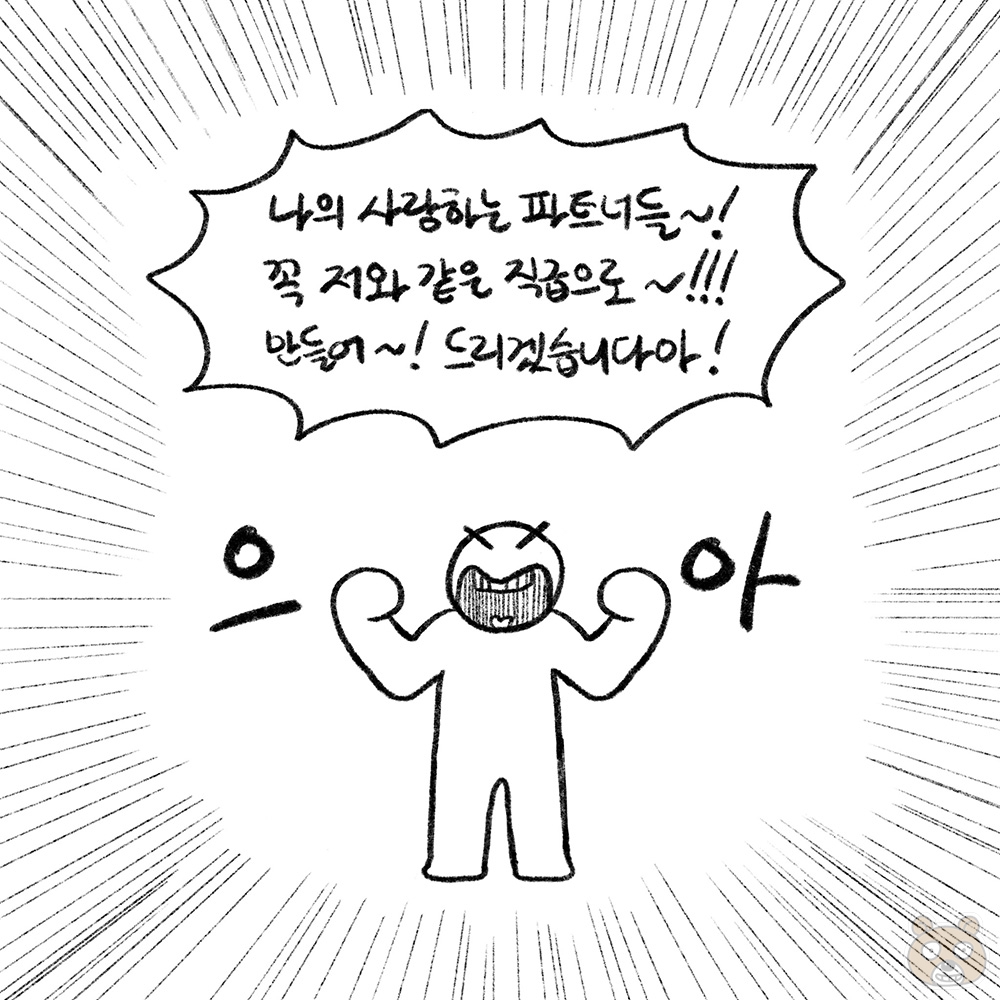 나의 사랑하는 파트너들~!
꼭 저와 같은 직급으로~!!!
만들어~! 드리겠습니다아!
으 아